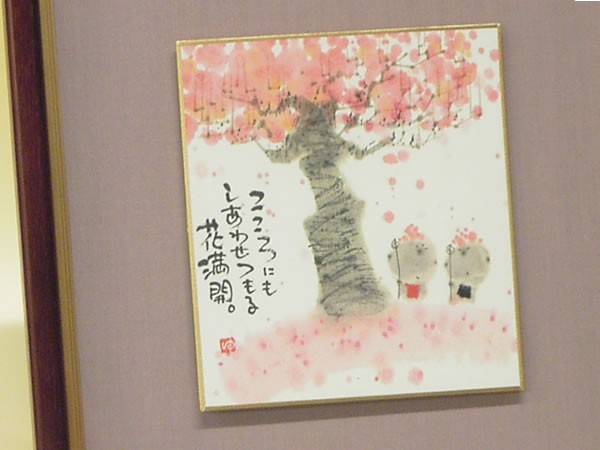 こころにも
しあわせつもる
花満開。
ゆ